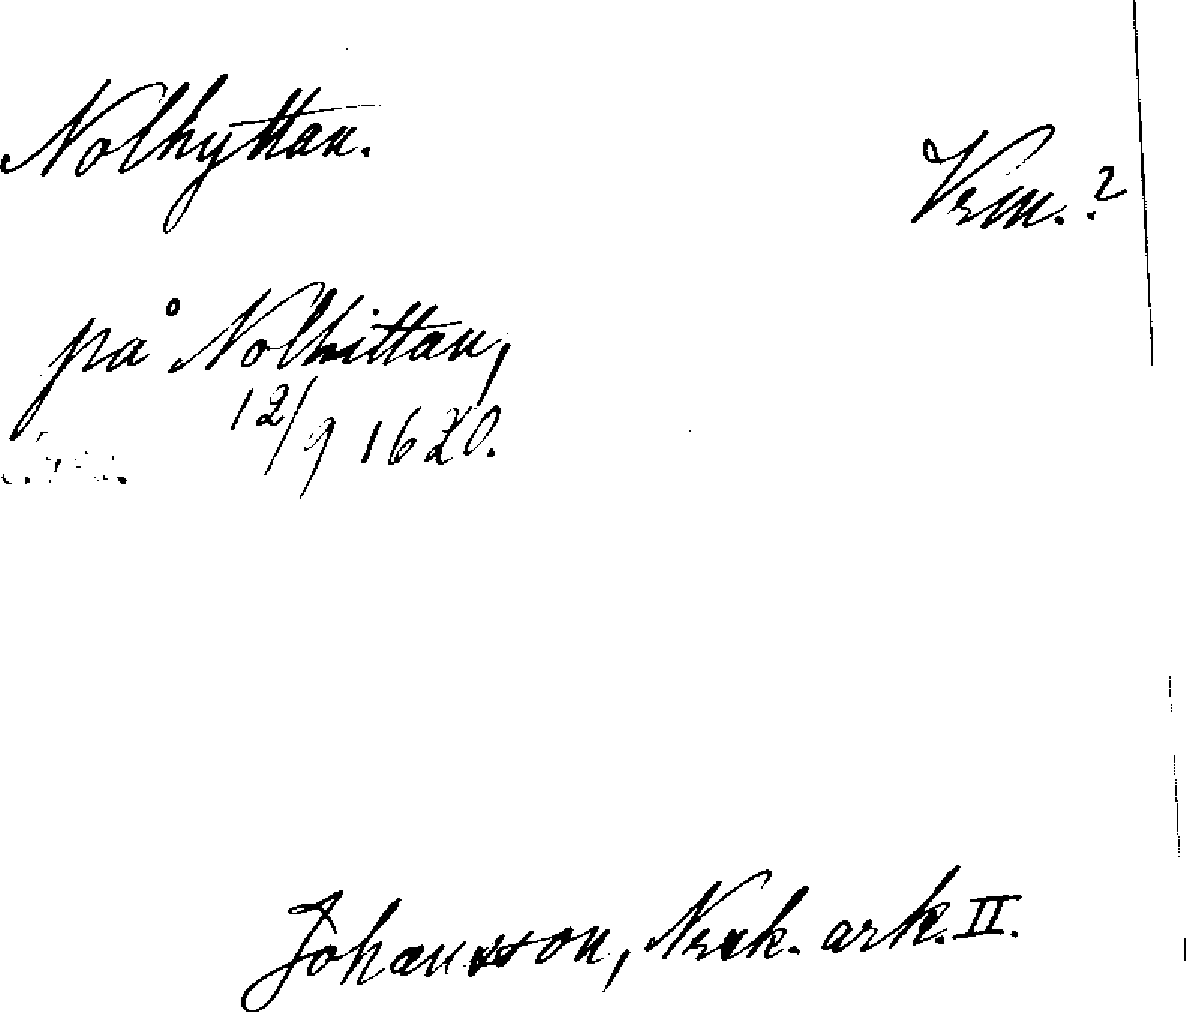 Nolhyttan.
Vrm.?
på Nolhittan,
12/9 1620.
Johansson, Nrk. ark. II.